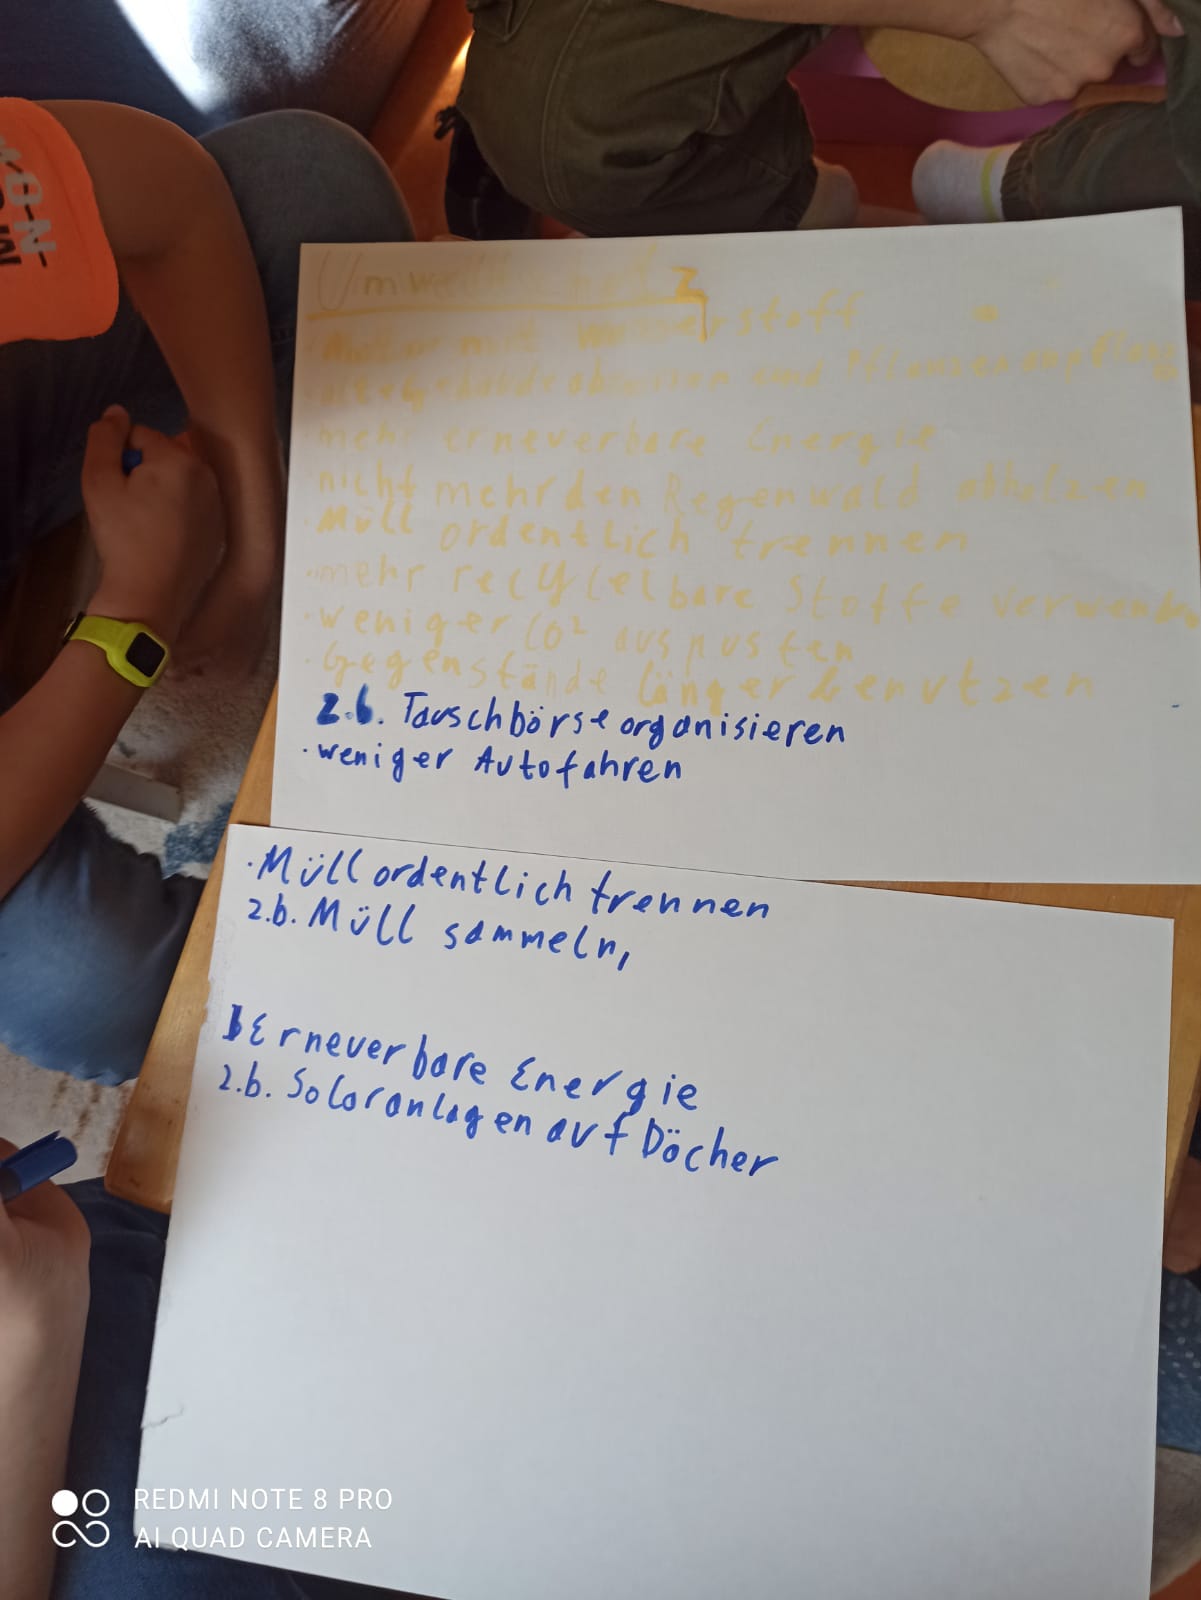 Umweltschutz
Motor mit Wasserstoff
alte Gebäude abreissen und Pflanzen anpflanz
mehr erneuerbare Energie
nicht mehr den Regenwald abholzen
· Müll ordentlich trennen
· mehr recycelbare Stoffe verwenden
· weniger CO² auspusten
· Gegenstände länger benutzen
z.b. Tauschbörse organisieren
· weniger Autofahren
· Müll ordentlich trennen
z.b. Müll sammeln,
Erneuerbare Energie
z.b. Solaranlagen auf Dächer
REDMI NOTE 8 PRO
AI QUAD CAMERA